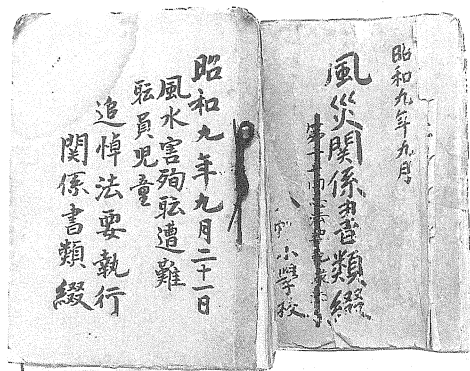 昭和九年九月
風災関係書類綴
小学校
昭和九年九月二十一日
風水害殉職遭難
職員児童
追悼法要執行
関係書類綴